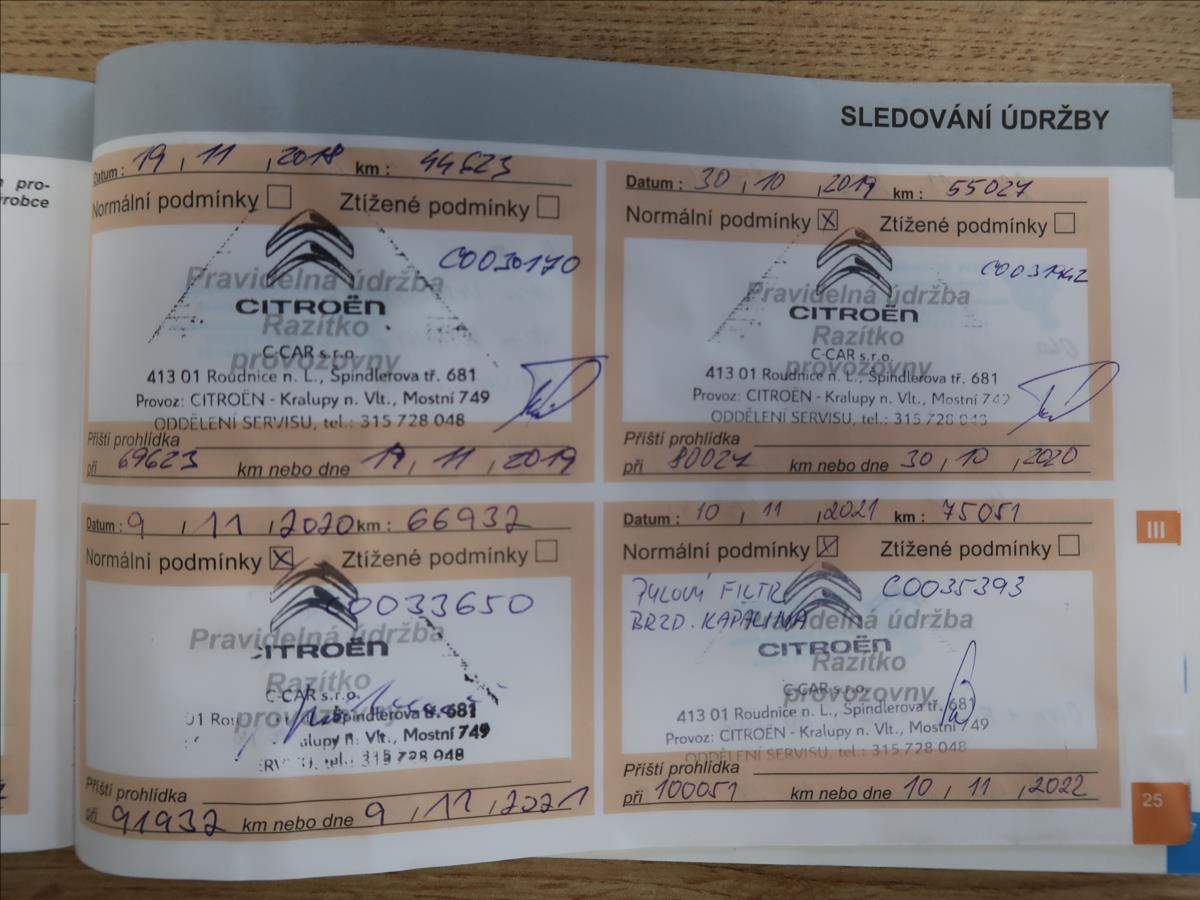 pro-
ýrobce
SLEDOVÁNÍ ÚDRŽBY
Datum : 19 , 11 , 2018 km : 44623
Normální podmínky Ztížené podmínky
C0030170
Pravidelná údržba
CITROËN
Razítko
C-CAR s.r.o.
provozovny
413 01 Roudnice n. L., Špindlerova tř. 681
Provoz: CITROËN - Kralupy n. Vlt., Mostní 749
ODDĚLENÍ SERVISU, tel.: 315 728 048
Příští prohlídka
při 69623 km nebo dne 19 , 11 , 2019
Datum : 30 , 10 , 2019 km : 55027
Normální podmínky X Ztížené podmínky
C0031942
Pravidelná údržba
CITROËN
Razítko
C-CAR s.r.o.
provozovny
413 01 Roudnice n. L., Špindlerova tř. 681
Provoz: CITROËN - Kralupy n. Vlt., Mostní 749
ODDĚLENÍ SERVISU, tel.: 315 728
Příští prohlídka
při 80027 km nebo dne 30 , 10 , 2020
Datum : 9 , 11 , 2020 km : 66932
Normální podmínky X Ztížené podmínky
C0033650
Pravidelná údržba
CITROËN
Razítko
C-CAR s.r.o.
provozovny
01 Rou Špindlerova tř. 681
alupy n. Vlt., Mostní 749
tel.: 315 728 048
Příští prohlídka
při 91932 km nebo dne 9 , 11 , 2021
Datum : 10 , 11 , 2021 km : 75051
Normální podmínky X Ztížené podmínky
PYLOVÝ FILTR C0035393
BRZD. KAPALINA
Pravidelná údržba
CITROËN
Razítko
C-CAR s.r.o.
provozovny
413 01 Roudnice n. L., Špindlerova tř. 681
Provoz: CITROËN - Kralupy n. Vlt., Mostní 749
ODDĚLENÍ SERVISU, tel.: 315 728 048
Příští prohlídka
při 100051 km nebo dne 10 , 11 , 2022
III
25